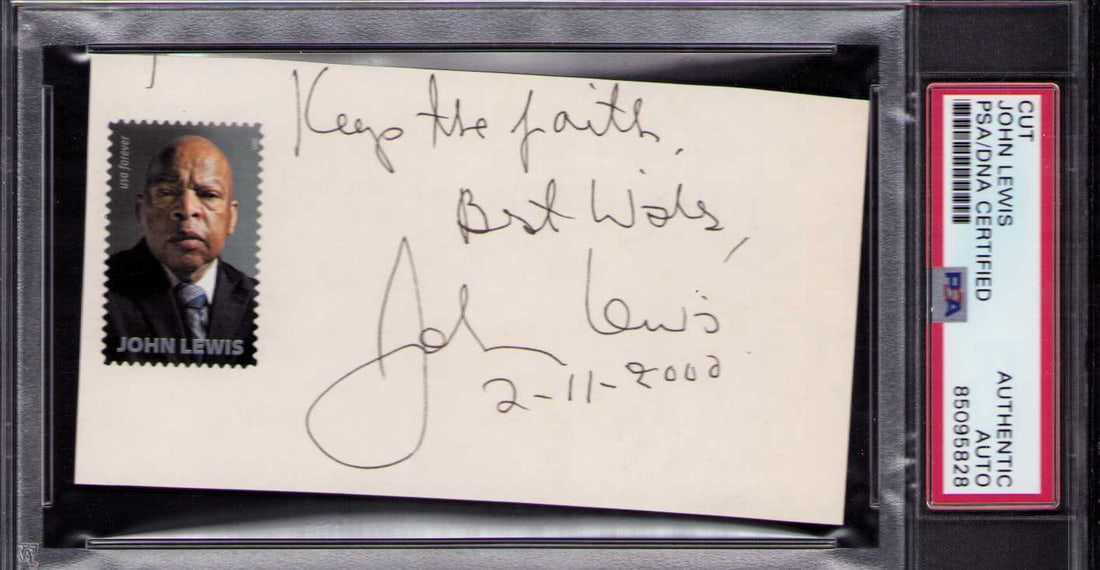 Keep the faith,
Best Wishes,
John Lewis
2-11-2000
usa forever
JOHN LEWIS
CUT
JOHN LEWIS
PSA/DNA CERTIFIED
PSA
AUTHENTIC
AUTO
85095828